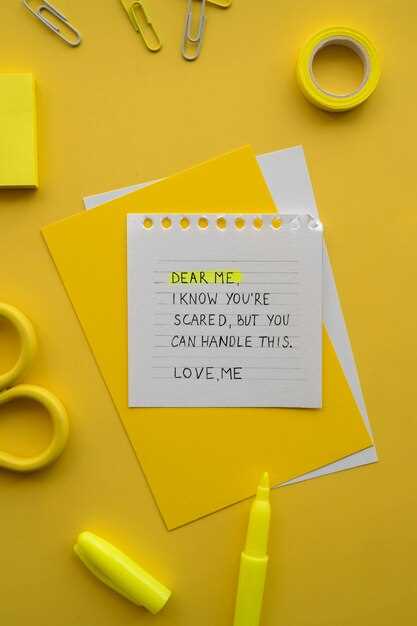 DEAR ME,
I KNOW YOU'RE
SCARED, BUT YOU
CAN HANDLE THIS.
LOVE, ME